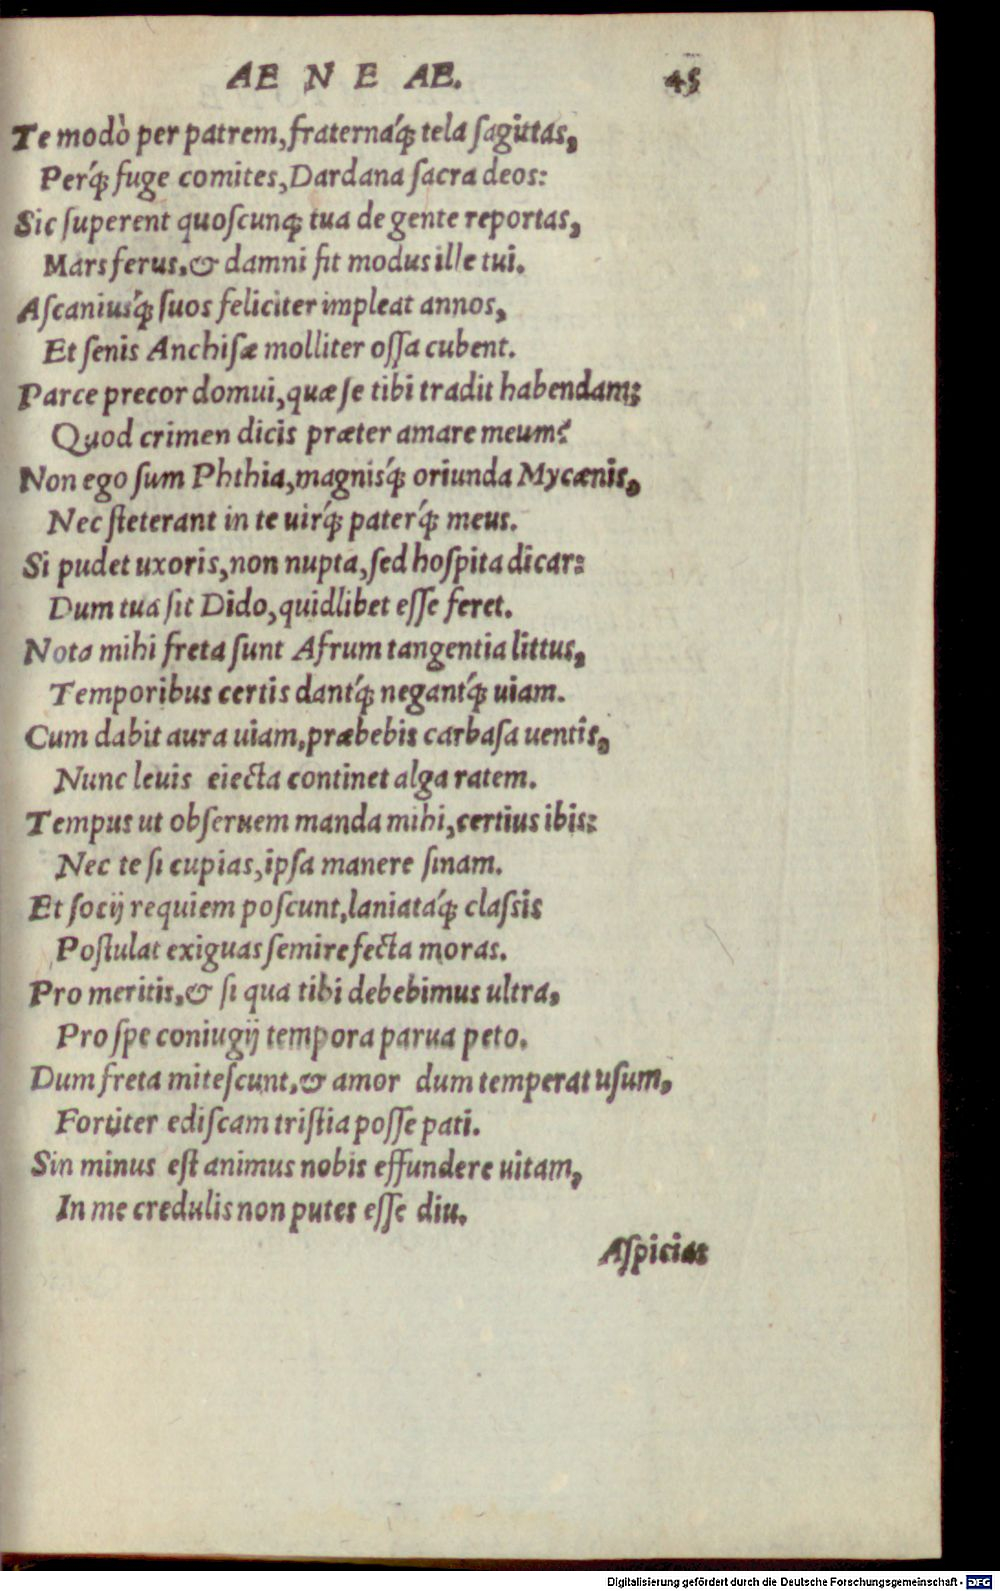 AE N E AE. 45
Te modò per patrem, fraternáq́; tela sagittas,
Perq́; fuge comites, Dardana sacra deos:
Sic superent quoscunq; tua de gente reportas,
Mars ferus, & damni sit modus ille tui.
Ascaniusq́; suos feliciter impleat annos,
Et senis Anchisæ molliter ossa cubent.
Parce precor domui, quæ se tibi tradit habendam;
Quod crimen dicis præter amare meum?
Non ego sum Phthia, magnisq́; oriunda Mycænis,
Nec steterant in te uirq́; paterq́; meus.
Si pudet uxoris, non nupta, sed hospita dicar:
Dum tua sit Dido, quidlibet esse feret.
Nota mihi freta sunt Afrum tangentia littus,
Temporibus certis dantq́; negantq́; uiam.
Cum dabit aura uiam, præbebis carbasa uentis,
Nunc leuis eiecta continet alga ratem.
Tempus ut obseruem manda mihi, certius ibis:
Nec te si cupias, ipsa manere sinam.
Et socij requiem poscunt, laniatáq́; classis
Postulat exiguas semirefecta moras.
Pro meritis, & si qua tibi debebimus ultra,
Pro spe coniugij tempora parua peto.
Dum freta mitescunt, & amor dum temperat usum,
Fortiter ediscam tristia posse pati.
Sin minus est animus nobis effundere uitam,
In me credulis non putes esse diu.
Aspicias
Digitalisierung gefördert durch die Deutsche Forschungsgemeinschaft - DFG